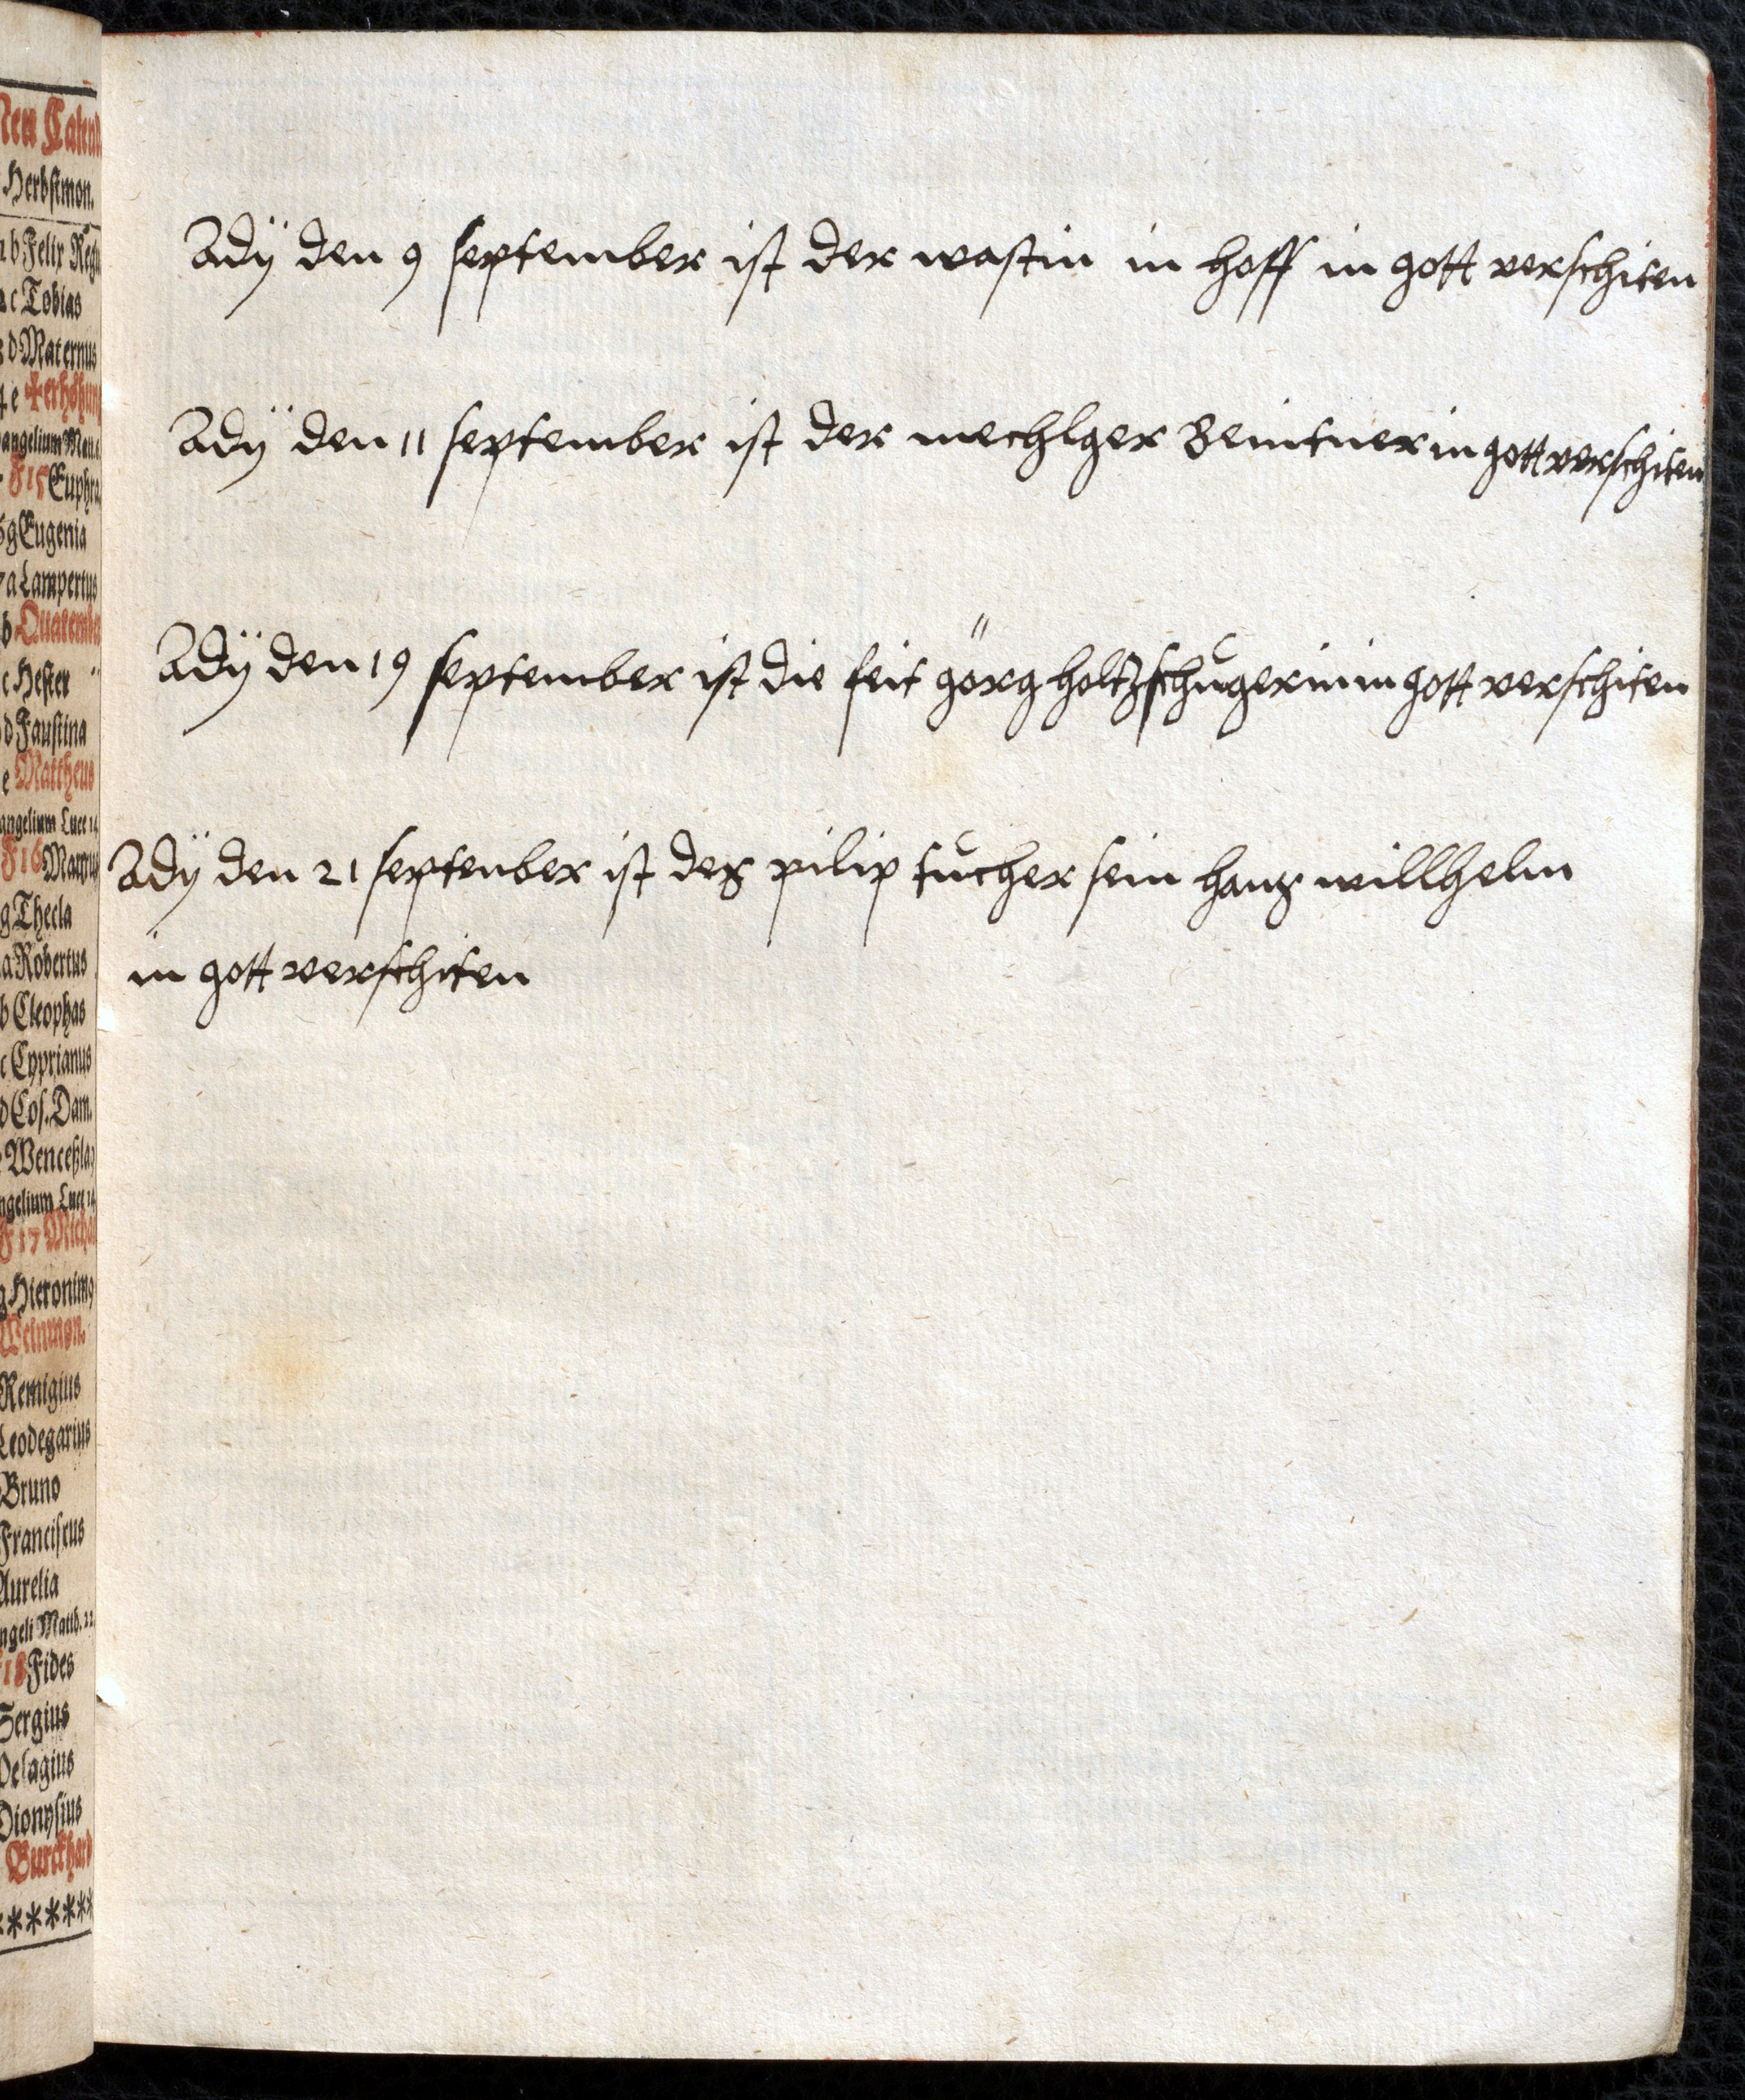 New Calend
Herbstmon.
b Felix Regu
c Tobias
d Maternus
4 e ✝erhöhung
F15 Euphra
g Eugenia
a Lampertus
b Quatember
c Hester
d Faustina
e Mattheus
angelium Luce 14
F16
g Thecla
a Robertus
b Cleophas
c Cyprianus
d Cos. Dam.
Wenceßla
ngelium Luce 14
F17 Micha
g Hieronim9
Weinmon.
Remigius
Leodegarius
Bruno
Franciscus
Aurelia
ngeli Matth. 22.
18 Fides
Sergius
Pelagius
Dionysius
Burckhard
******
Adÿ den 9 september ist der wastin in hoff in gott verschiten
Adÿ den 11 september ist der mechlger in gott verschiten
Adÿ den 19 september ist die feit görg holtzschugerin in gott verschiten
Adÿ den 21 septenber ist des pilip tucher sein hans willhelm
in gott verschiten